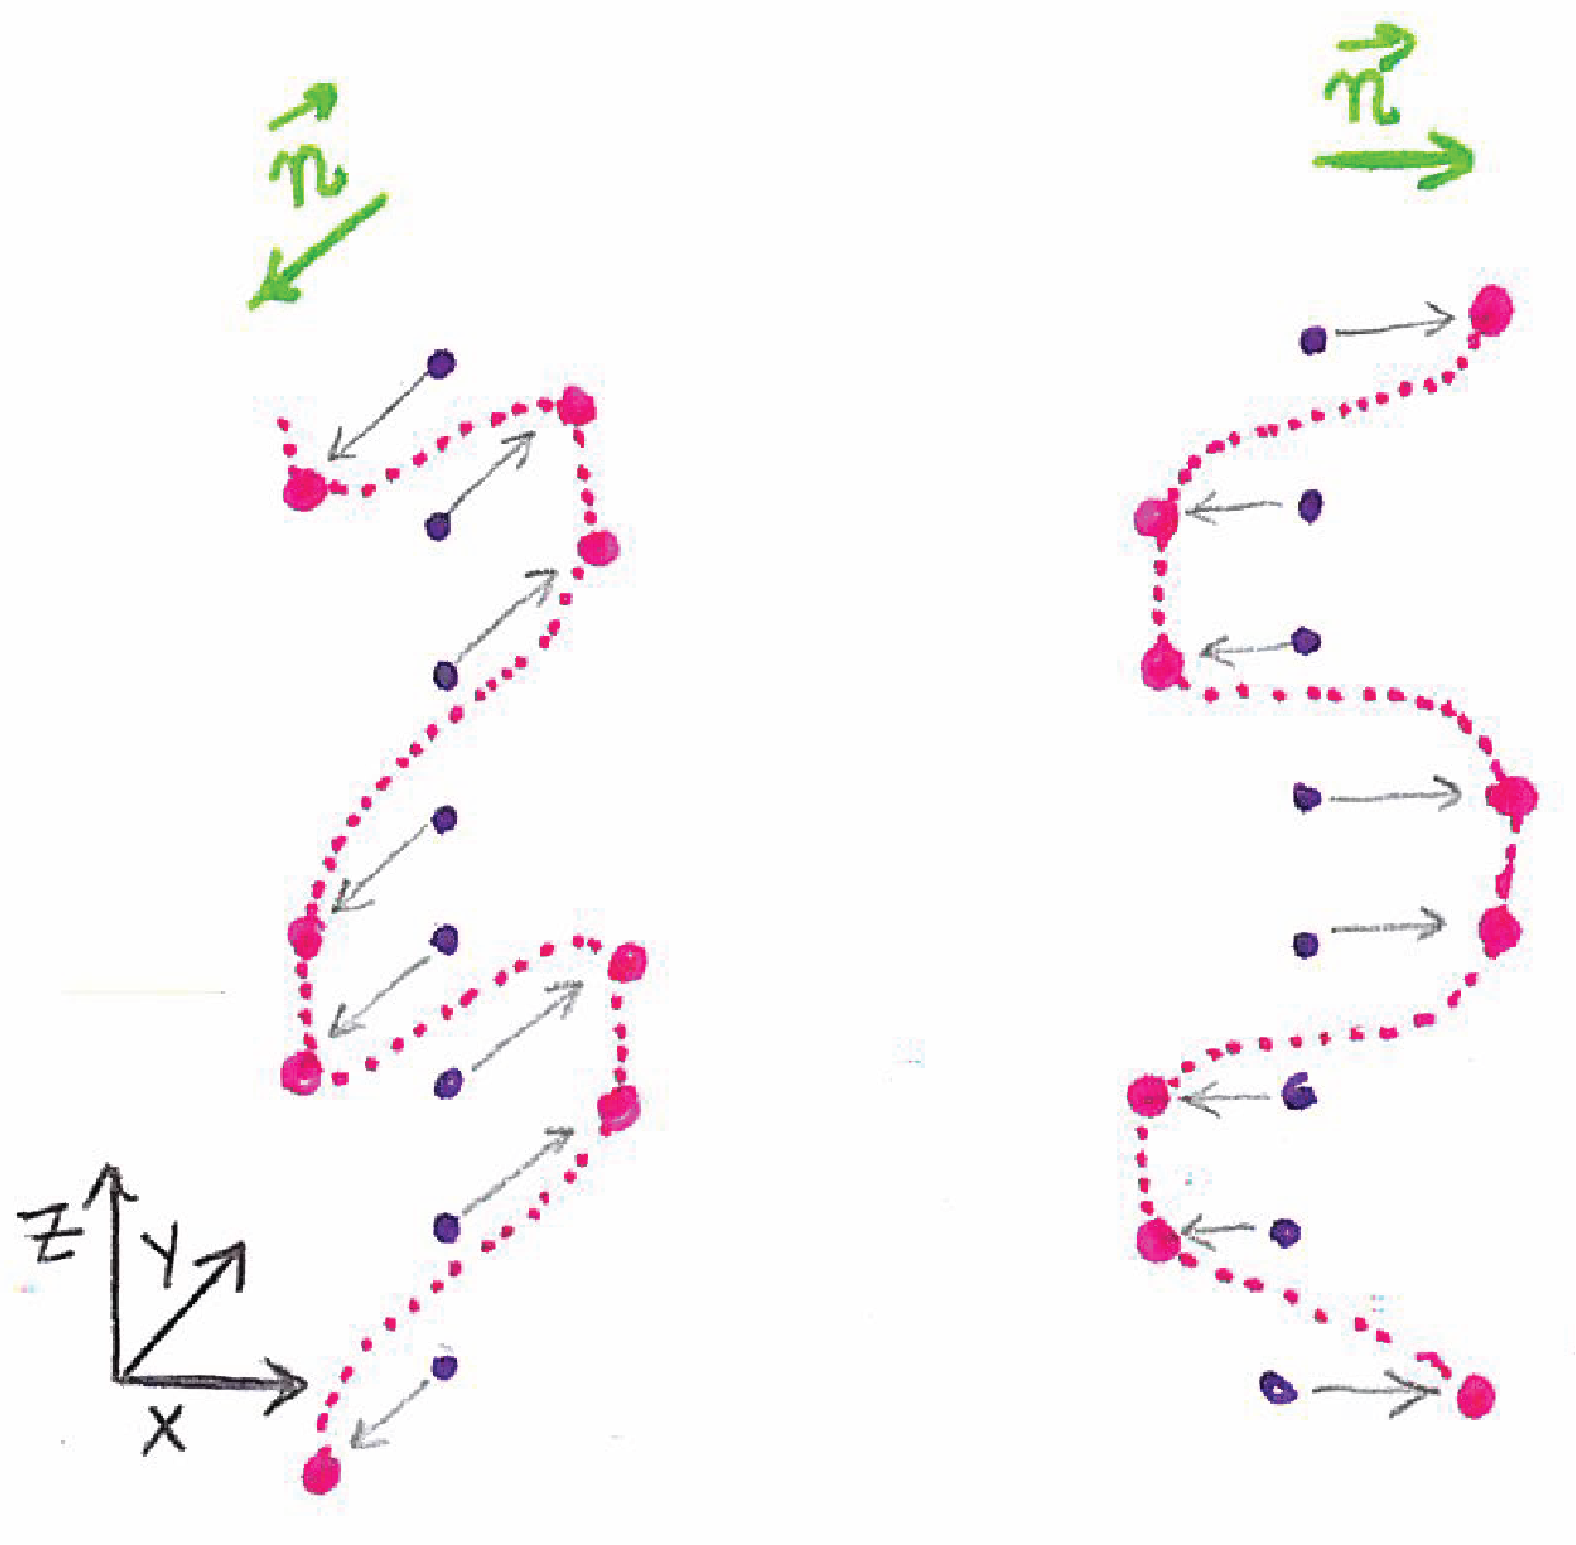 n⃗
n⃗
Z
Y
X